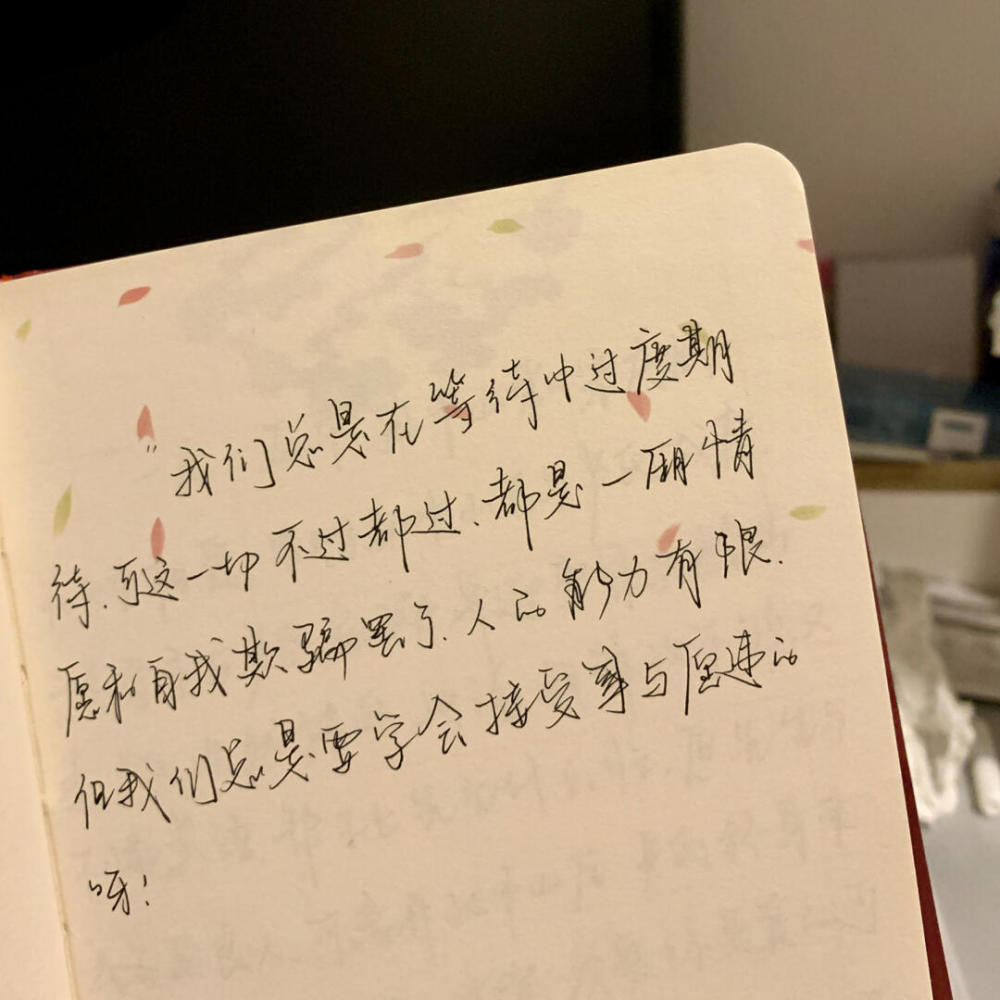 “我们总是在等待中过度期
待.可这一切不过都过、都是一厢情
愿和自我欺骗罢了.人的能力有限.
但我们总是要学会接受事与愿违的
呀!